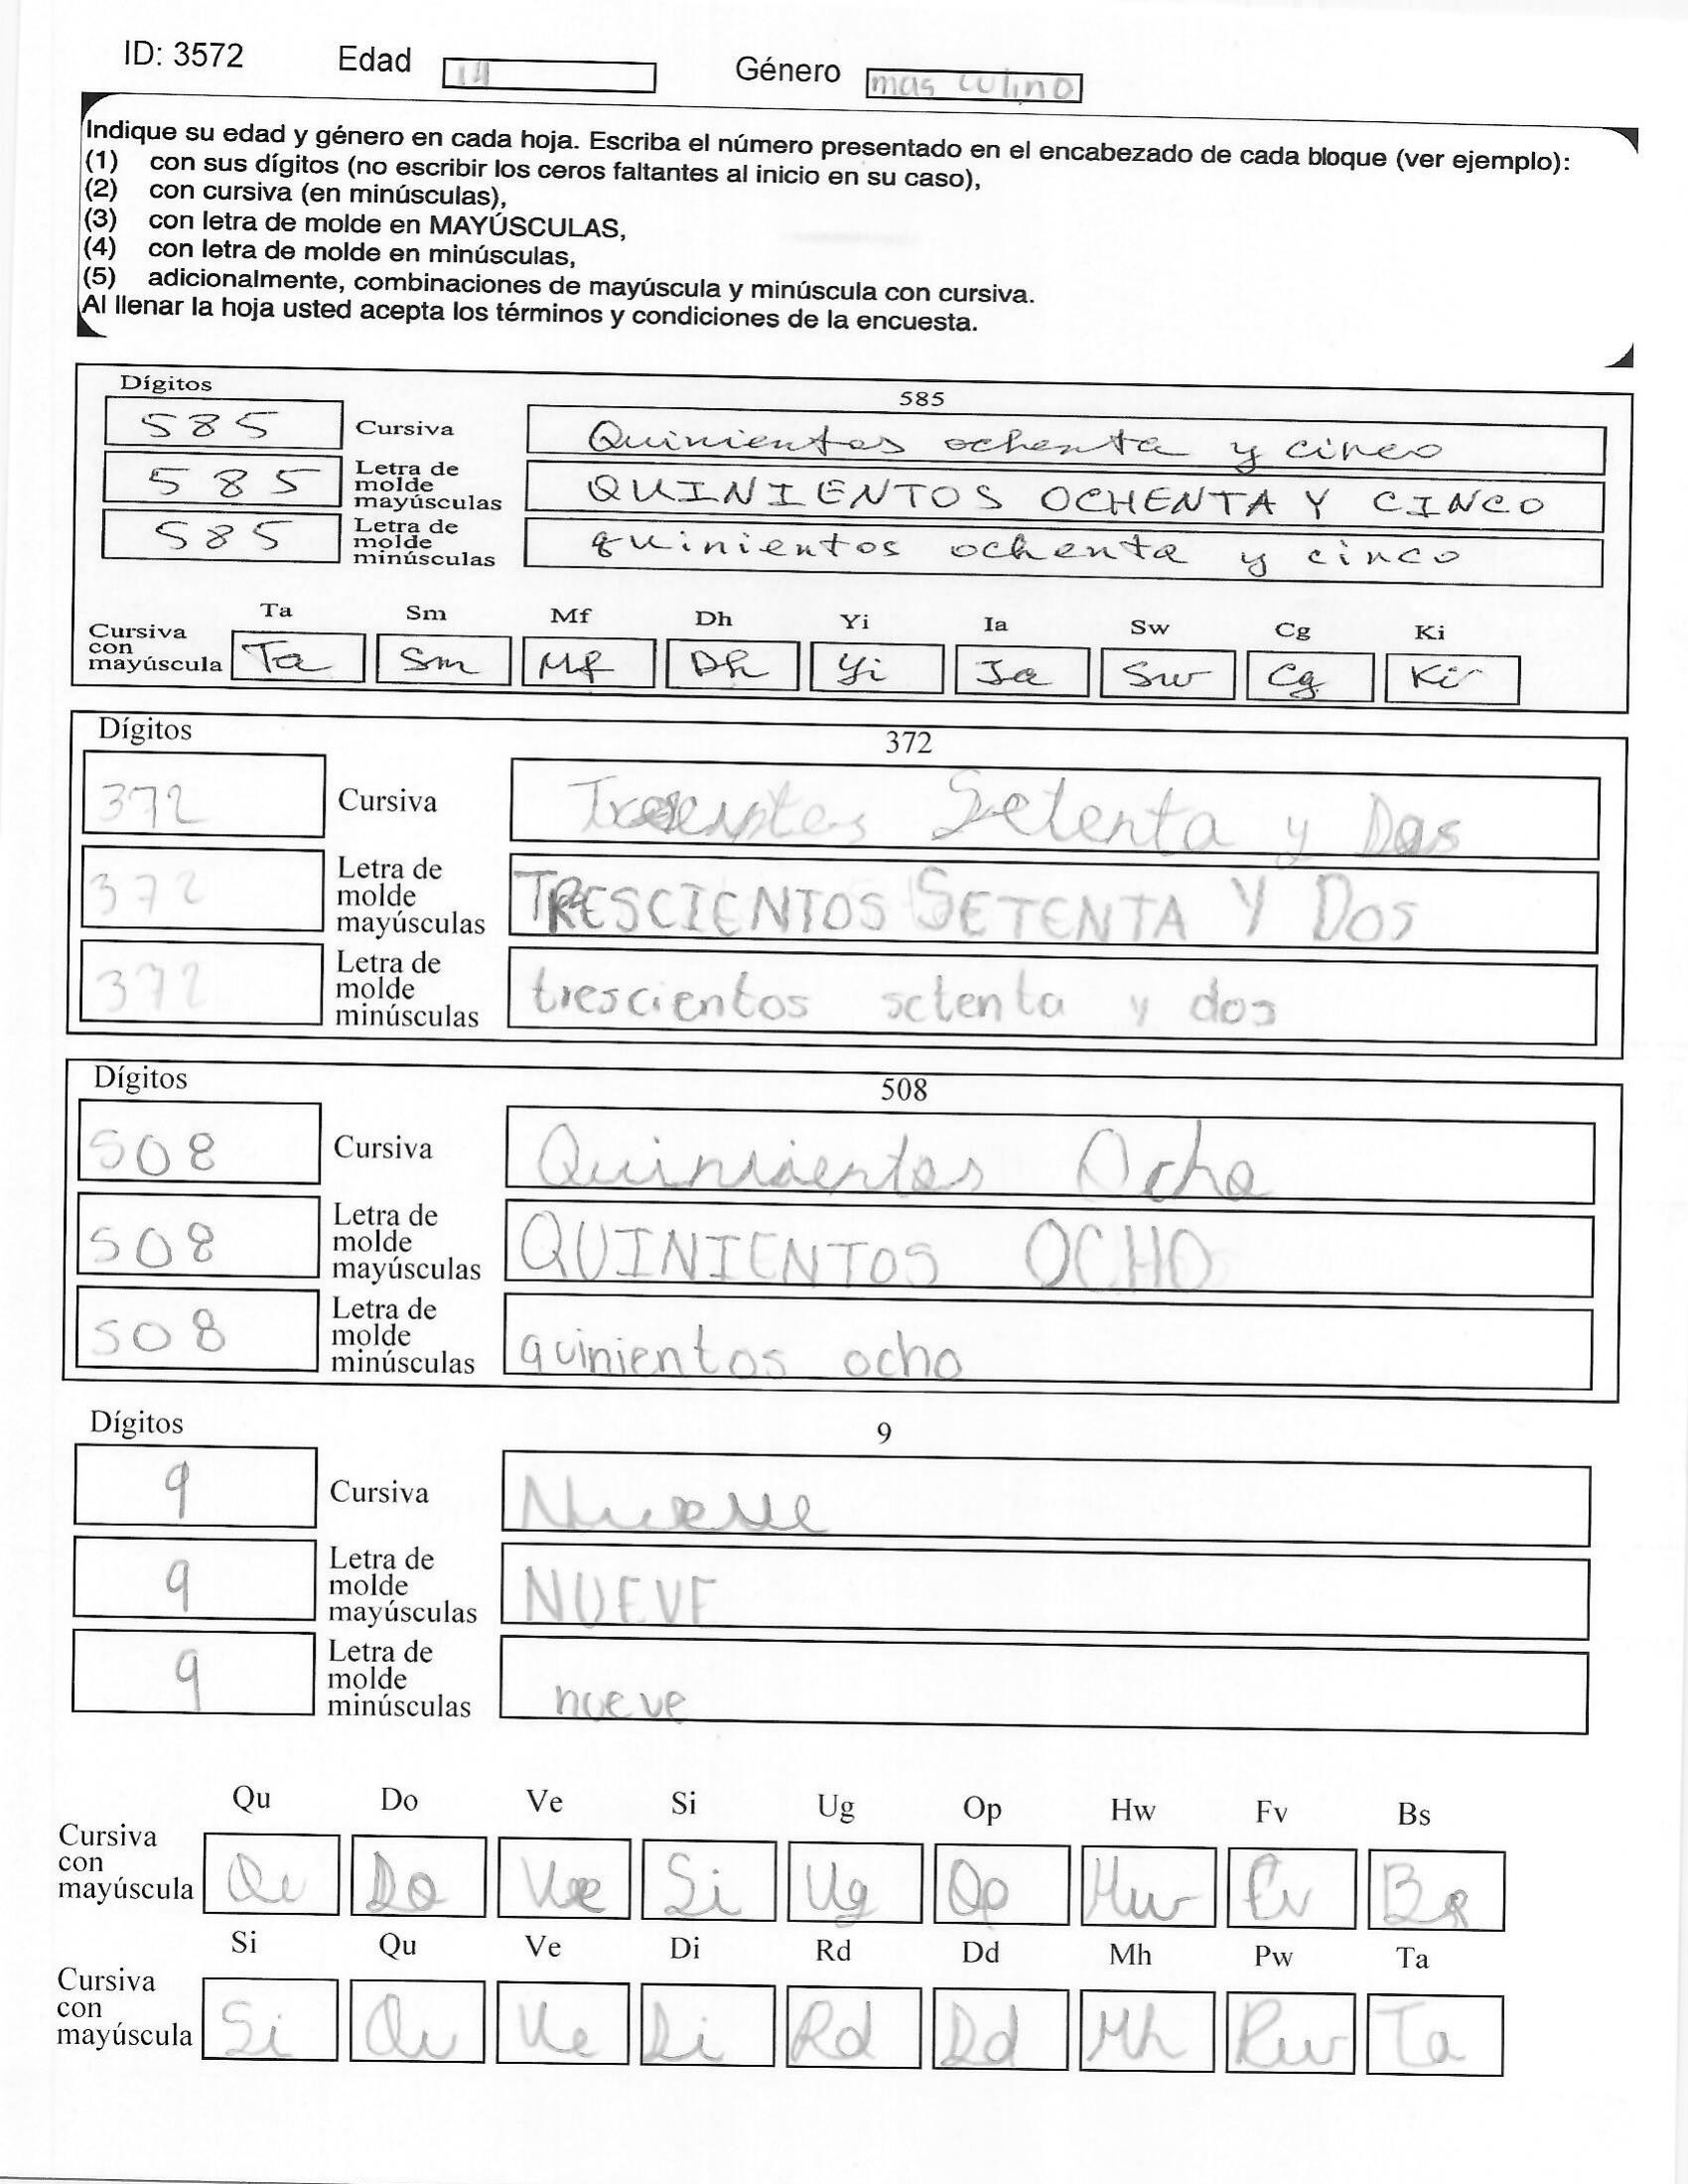 ID: 3572 Edad Género masculino
Indique su edad y género en cada hoja. Escriba el número presentado en el encabezado de cada bloque (ver ejemplo):
(1) con sus dígitos (no escribir los ceros faltantes al inicio en su caso),
(2) con cursiva (en minúsculas),
(3) con letra de molde en MAYÚSCULAS,
(4) con letra de molde en minúsculas,
(5) adicionalmente, combinaciones de mayúscula y minúscula con cursiva.
Al llenar la hoja usted acepta los términos y condiciones de la encuesta.
Dígitos 585
585 Cursiva Quinientos ochenta y cinco
585 Letra de molde mayúsculas QUINIENTOS OCHENTA Y CINCO
585 Letra de molde minúsculas quinientos ochenta y cinco
Ta Sm Mf Dh Yi Ia Sw Cg Ki
Cursiva con mayúscula Ta Sm Mf Dh Yi Ia Sw Cg Ki
Dígitos 372
372 Cursiva Setenta y Dos
372 Letra de molde mayúsculas TRESCIENTOS SETENTA Y DOS
372 Letra de molde minúsculas trescientos setenta y dos
Dígitos 508
508 Cursiva Ocho
508 Letra de molde mayúsculas QUINIENTOS OCHO
508 Letra de molde minúsculas quinientos ocho
Dígitos 9
9 Cursiva Nueve
9 Letra de molde mayúsculas NUEVE
9 Letra de molde minúsculas nueve
Qu Do Ve Si Ug Op Hw Fv Bs
Cursiva con mayúscula Qu Do Ve Si Ug Op Hw Fv Bs
Si Qu Ve Di Rd Dd Mh Pw Ta
Cursiva con mayúscula Si Qu Ve Di Rd Dd Mh Pw Ta